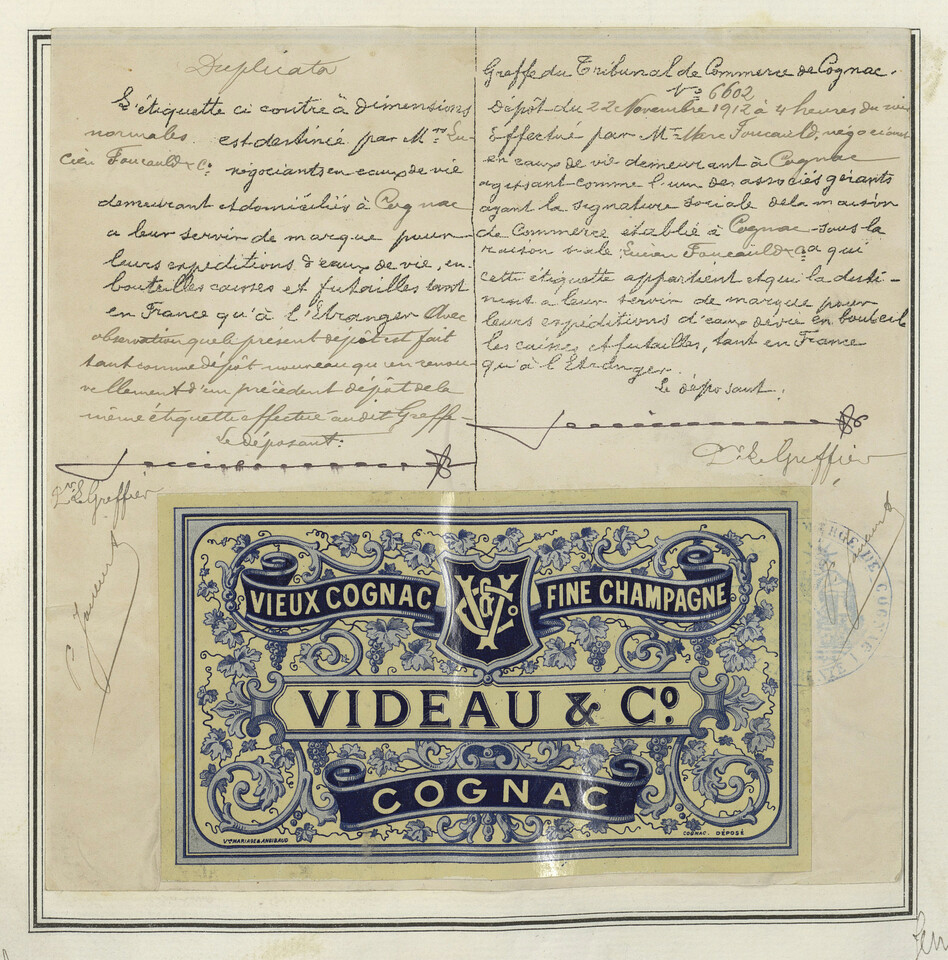 Duplicata
L'étiquette ci contre à dimensions
normales est destinée par Mrs Lu-
cien Foucauld & Co négociants en eaux de vie
demeurant et domiciliés à Cognac
a leur servir de marque pour
leurs expéditions d'eaux de vie, en
bouteilles caisses et futailles tant
en France qu'à l'Etranger Avec
observation que le présent dépôt est fait
tant comme dépôt nouveau qu'en renou-
vellement d'un précédent dépôt de la
même étiquette effectué au dit Greffe
Le déposant.
Le Greffier
Greffe du Tribunal de Commerce de Cognac.
No 6602
Dépôt du 22 Novembre 1912 à 4 heures du soir
Effectué par Mr Marc Foucauld, négociant
en eaux de vie demeurant à Cognac
agissant comme l'un des associés gérants
ayant la signature sociale de la maison
de Commerce établie à Cognac sous la
raison Lucien Foucauld & Co a qui
cette étiquette appartient et qui la desti-
nent a leur servir de marque pour
leurs expéditions d'eaux de vie en bouteil
les caisses et futailles, tant en France
qu'à l'Etranger.
Le déposant.
Le Greffier
VIEUX COGNAC
VCo
FINE CHAMPAGNE
VIDEAU & Co.
COGNAC
Vve MARIAGE & ANGIBAUD
COGNAC. DÉPOSÉ